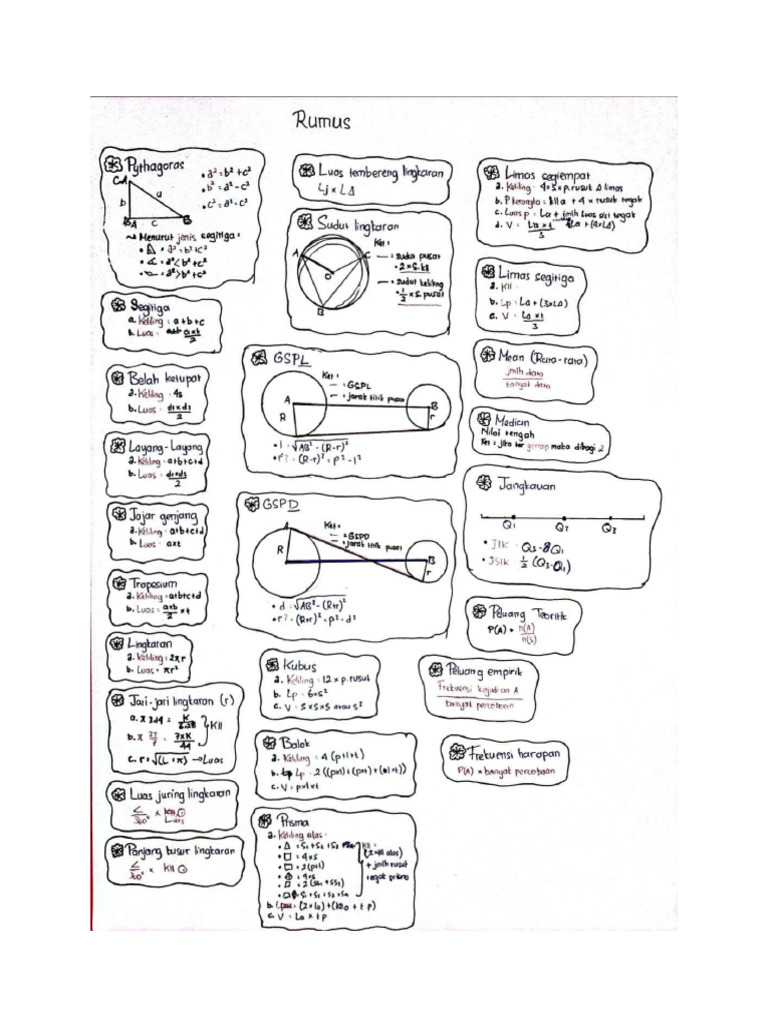 Rumus
Pythagoras
a² = b² + c²
b² = a² - c²
c² = a² - c²
C
b
a
A
c
B
~ Menurut jenis segitiga :
a² = b² + c²
a² < b² + c²
a² > b² + c²
Segitiga
a. Keliling = a+b+c
b. Luas = axt
2
Belah ketupat
a. Keliling = 4s
b. Luas = d1xd2
2
Layang-Layang
a. Keliling = a+b+c+d
b. Luas = d1xd2
2
Jajar genjang
a. Keliling = a+b+c+d
b. Luas = axt
Trapesium
a. Keliling = a+b+c+d
b. Luas = a+b x t
2
Lingkaran
a. Keliling = 2πr
b. Luas = πr²
Jari-jari lingkaran (r)
a. π 3,14 = K
6.28
b. π 22 = 7xK
7 44
Kll
c. r = √(L ÷ π) → Luas
Luas juring lingkaran
∠ x Kll
360° Luas
Panjang busur lingkaran
∠ x Kll
360°
Luas tembereng lingkaran
Lj x L∆
Sudut lingkaran
Ket :
A
C
O
B
= sudut pusat
= 2 x s. kll
= sudut keliling
= 1 x s. pusat
2
GSPL
Ket :
= GSPL
= jarak titik pusat
A
B
R
r
l = √AB² - (R-r)²
r? = (R-r)² = p² - l²
GSPD
A
Ket :
= GSPD
= jarak titik pusat
R
B
r
d = √AB² - (R+r)²
r? = (R+r)² = p² - d²
Kubus
a. Keliling = 12 x p. rusuk
b. Lp = 6xs²
c. V = s x s x s atau s³
Balok
a. Keliling = 4 (p+l+t)
b. Lp = 2 ((pxl)+(pxt)+(lxt))
c. V = pxlxt
Prisma
a. Keliling alas =
∆ = s1 + s2 + s3
□ = 4xs
= 2(p+l)
= 4xs
= 2(ss1 + ss2)
= s1 + s2 + s3 + s4
Kll =
(2xkll alas)
+ jmlh rusuk
tegak prisma
= (2xla)+(kla x tp)
c. V = La x tp
Limas segiempat
a. Keliling = 4xs x p. rusuk ∆ limas
b. P kerangka = kll a + 4 x rusuk tegak
c. Luas p = La + jmlh luas sisi tegak
d. V = La x t La + (4xL∆)
3
Limas segitiga
a. Kll =
b. Lp = La + (3xL∆)
c. V = La x t
3
Mean (Rata-rata)
jmlh data
banyak data
Median
Nilai tengah
Ket = jika genap maka dibagi 2
Jangkauan
Q1 Q2 Q3
JIK = Q3 - Q1
JSIK = 1 (Q3-Q1)
2
Peluang Teoritik
P(A) = n(A)
n(S)
Peluang empirik
Frekuensi kejadian A
banyak percobaan
Frekuensi harapan
P(A) x banyak percobaan